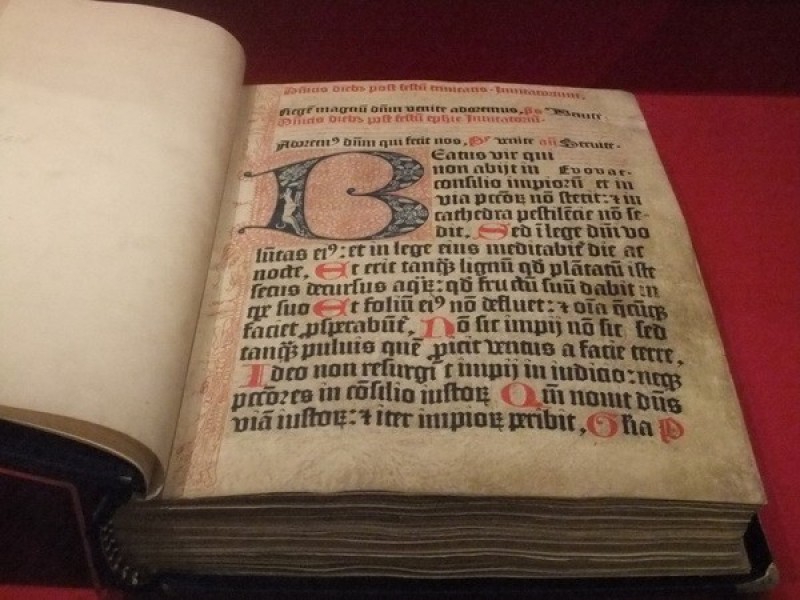 diebꝫ post festū trinitatis. Inuitatoriū.
Regē magnū dūm venite adoremus, ps Venite
diebꝫ post festū ephie Inuitatoriū.
Adoremꝰ dūm qui fecit nos, ps venite añ Seruite.
Beatus vir qui
non abijt in Euouae.
consilio impiorū et in
via pccōꝝ nō stetit: ⁊ in
cathedra pestilēcie nō se-
dit, Sed ī lege dūi vo
lūtas eiꝰ: et in lege eius meditabit̄ die ac
nocte, Et erit tanqꝫ lignū qd̄ plātatū iste
secus decursus aqꝝ: qd̄ fructū suū dabit in
tꝑe suo Et foliū eiꝰ nō defluet: ⁊ oīa q̄cūqꝫ
faciet ꝓsperabūt̄, Nō sic impij nō sic sed
tanqꝫ puluis quē ꝓicit ventus a facie terre,
Ideo non resurgūt impij in iudicio: neqꝫ
pccōres in cōsilio iustoꝝ Qm̄ nouit dn̄s
viā iustoꝝ: ⁊ iter impioꝝ peribit, Gl̄ia P